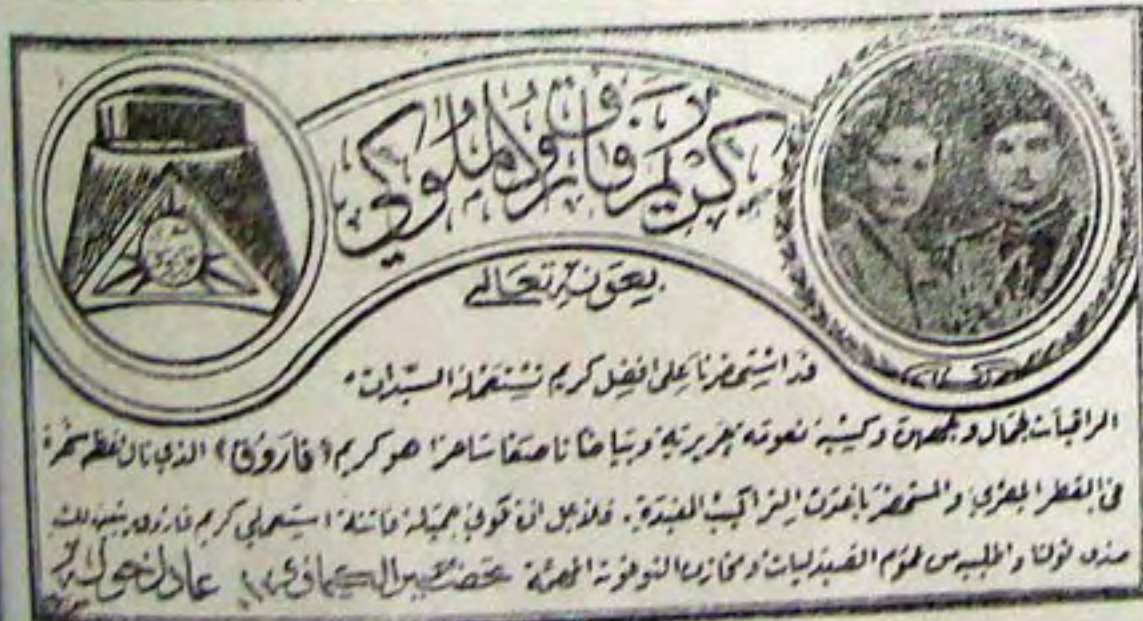 كريم فاروق الملوكي
بعونه تعالى
قد استحضرنا على افضل كريم تستعمله السيدات
الراقيات لجمال وجههن وكسبه نعومة حريرية وبياضا ناصعا ساحرا هو كريم (فاروق) الذي نال اعظم شهرة
في القطر المصري والمستحضر باحدث التراكيب المفيدة. فلاجل ان تكوني جميلة فاتنة استعملي كريم فاروق يتبين لك
صدق قولنا واطلبيه من عموم الصيدليات ومخازن الادوية المهمة تحضير الكيماوي عادل